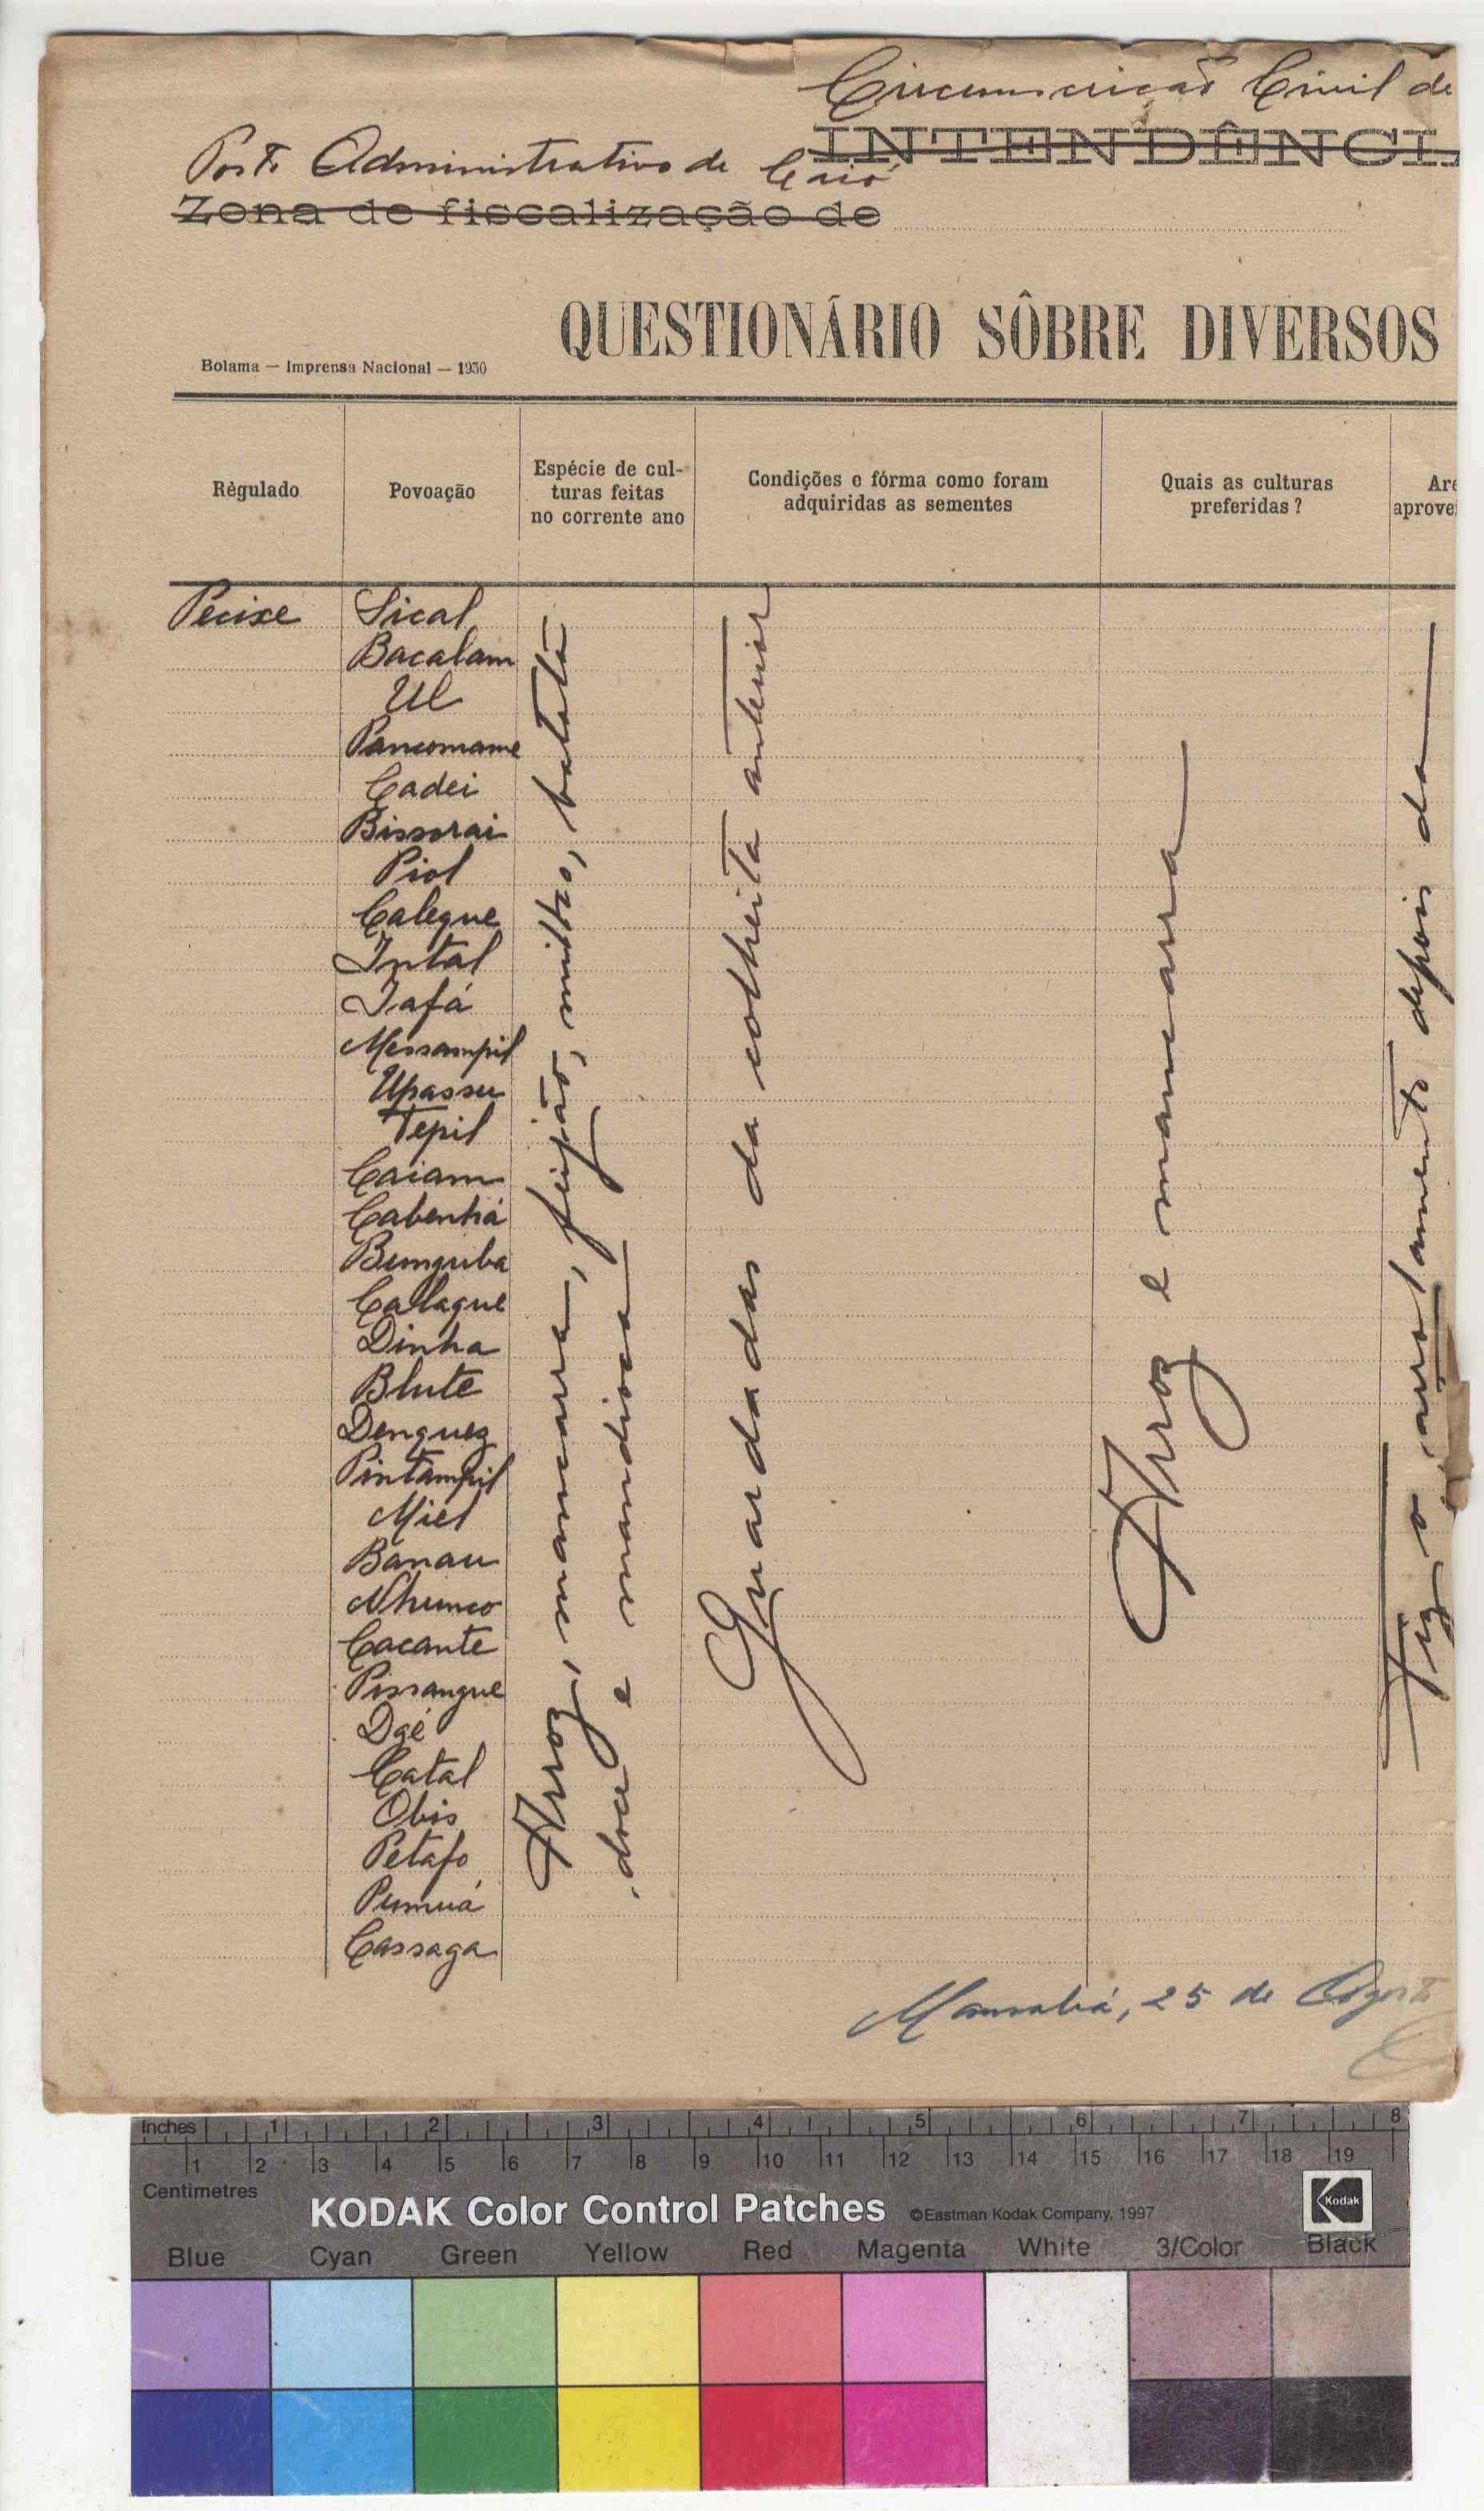 Circunscrição Civil de
INTENDÊNCI
Posto Administrativo de Caió
Zona de fiscalização de
QUESTIONÁRIO SÔBRE DIVERSOS
Bolama — Imprensa Nacional — 1930
Règulado
Povoação
Espécie de cul-
turas feitas
no corrente ano
Condições e fórma como foram
adquiridas as sementes
Quais as culturas
preferidas?
Are
aprovei
Pecixe
Sical
Bacalam
Ul
Pancomame
Cadei
Bissorai
Piol
Calegue
Intal
Tafá
Messampil
Upassu
Tepil
Caiam
Cabenhá
Bunguba
Calague
Dinha
Blute
Denguez
Pintampil
Miel
Banau
Nhunco
Cacante
Pissangue
Dgé
Catal
Obis
Petafo
Pumuá
Cassaga
Arroz, mancarra, feijão, milho, batata
doce e mandioca
Guardadas da colheita anterior
Arroz e mancarra
o arrolamento depois da
Mansabá, 25 de Agosto
Inches 1 2 3 4 5 6 7 8
1 2 3 4 5 6 7 8 9 10 11 12 13 14 15 16 17 18 19
Centimetres
KODAK Color Control Patches ©Eastman Kodak Company, 1997 Kodak
Blue Cyan Green Yellow Red Magenta White 3/Color Black